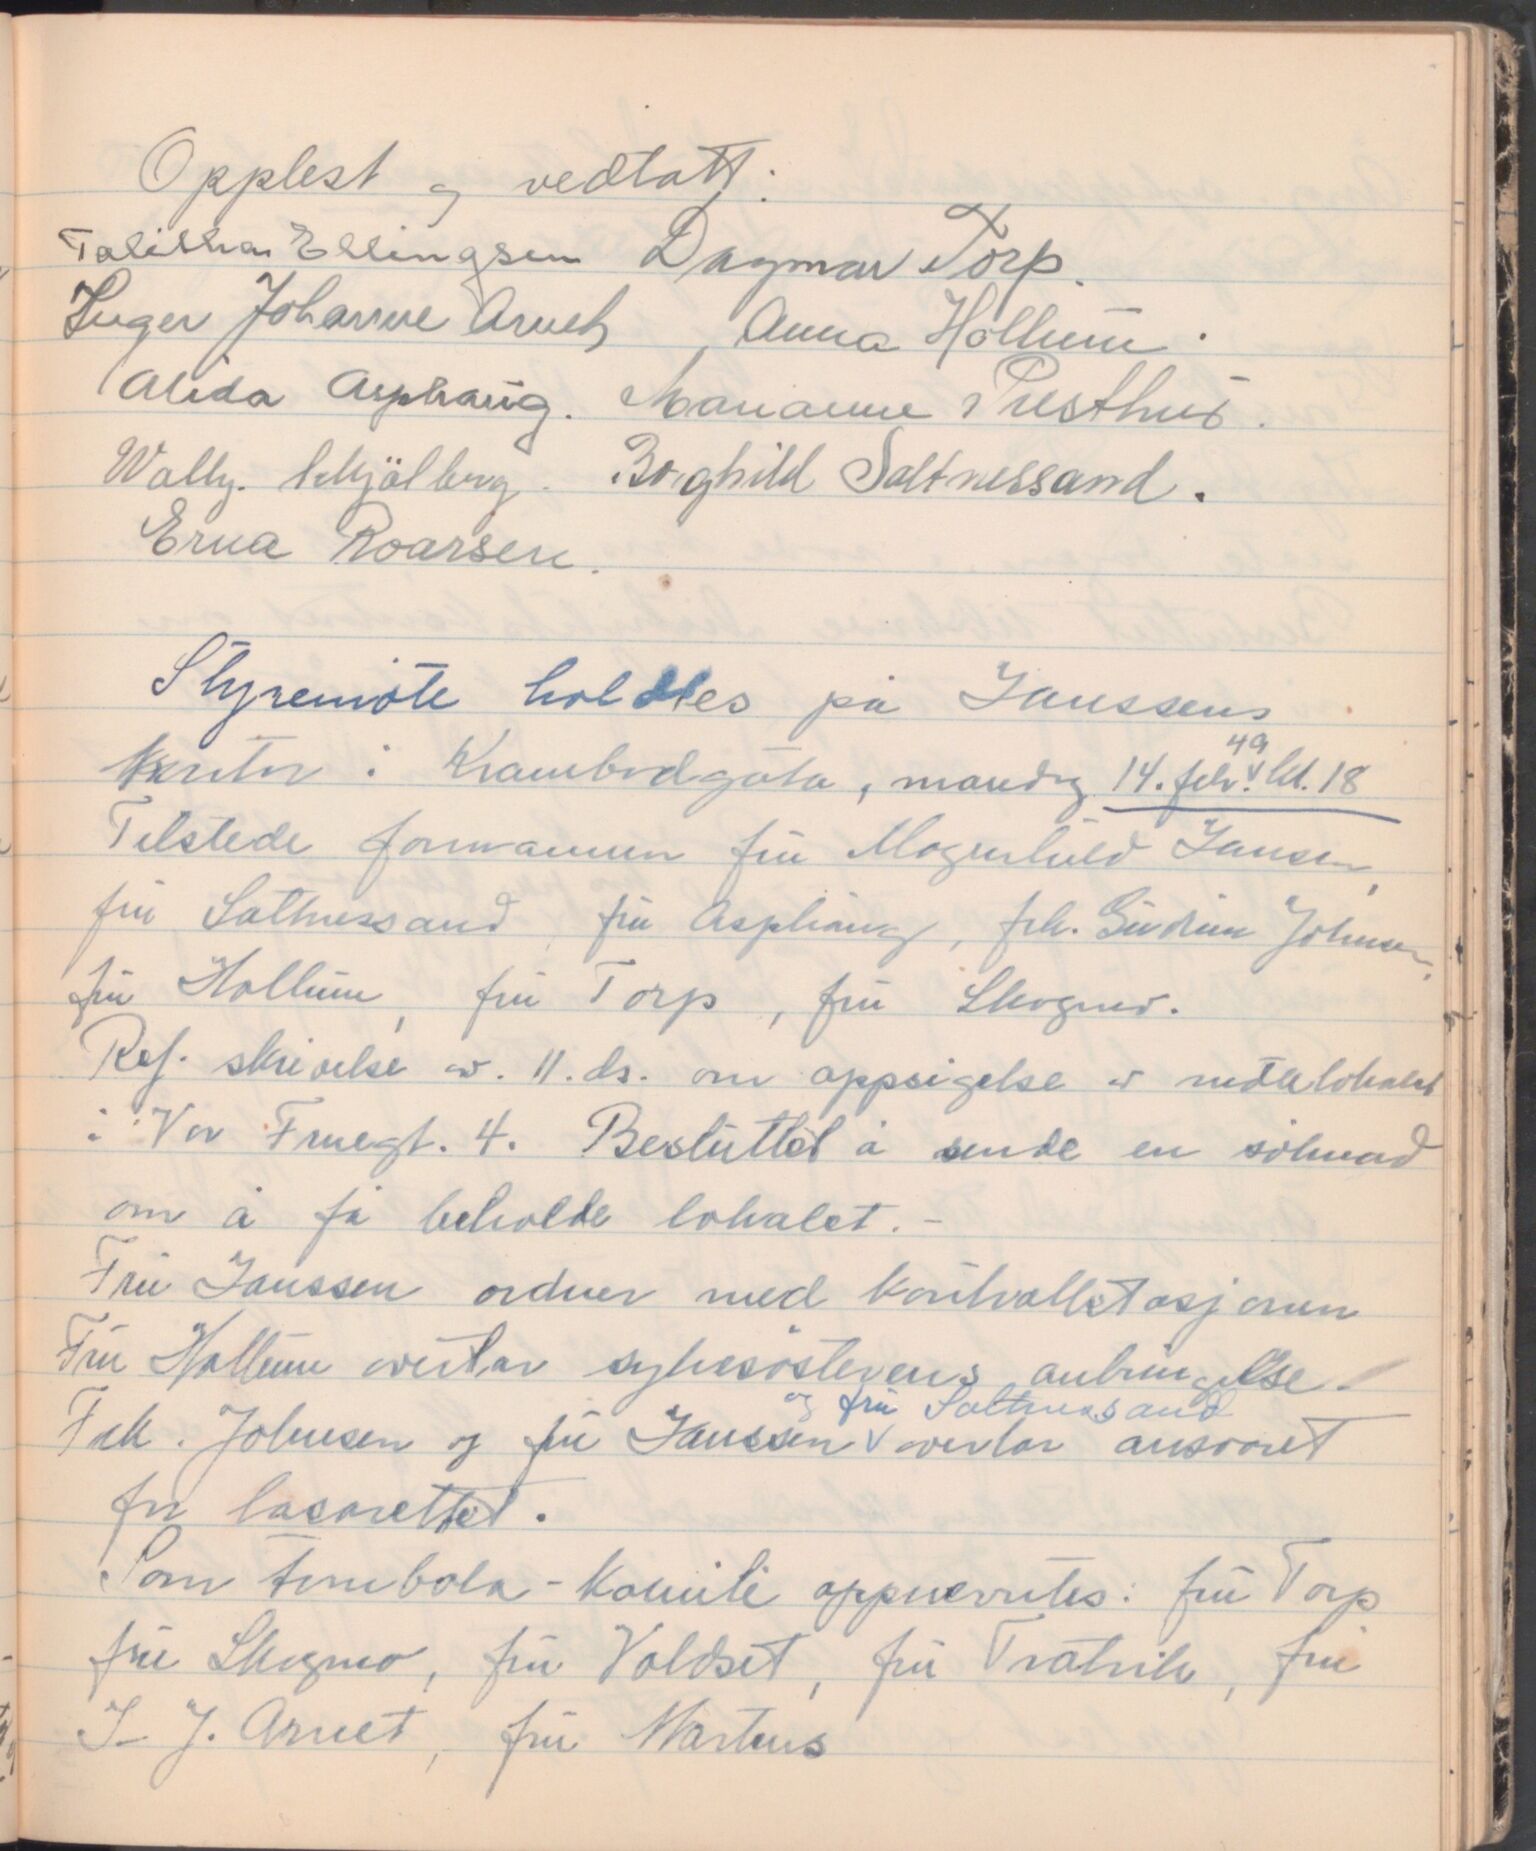 Opplest og vedtatt.
Talitha Ellingsen Dagmar Torp.
Inger Johanne Arnet, Anna Hollum.
Alida Asphaug. Marianne Presthus.
Wally Schjölberg. Borghild Saltnessand.
Erna Roarsen.
Styremöte holdtes på Janssens
kontor i Krambodgata, mandag 14. febr. 49 kl. 18
Tilstede formannen frü Magnhild Jansen,
frü Saltnessand, frü Asphaüg, frk. Güdrün Johnsen,
frü Hollüm, frü Torp, frü Skogmo.
Ref. skrivelse av 11. ds. om oppsigelse av mötelokalet
i Vor Fruegt. 4. Beslüttet å sende en söknad
om å få beholde lokalet. -
Frü Janssen ordner med kontrollstasjonen
Frü Hollüm overtar sykesösterens anbringelse.
Frk. Johnsen og frü Janssen og frü Saltnessand overtar ansvaret
for lasarettet.
Som tombola-komite oppnevntes: frü Torp
frü Skogmo, frü Voldset, frü Fråtvik, frü
I. J. Arnet, frü Martens